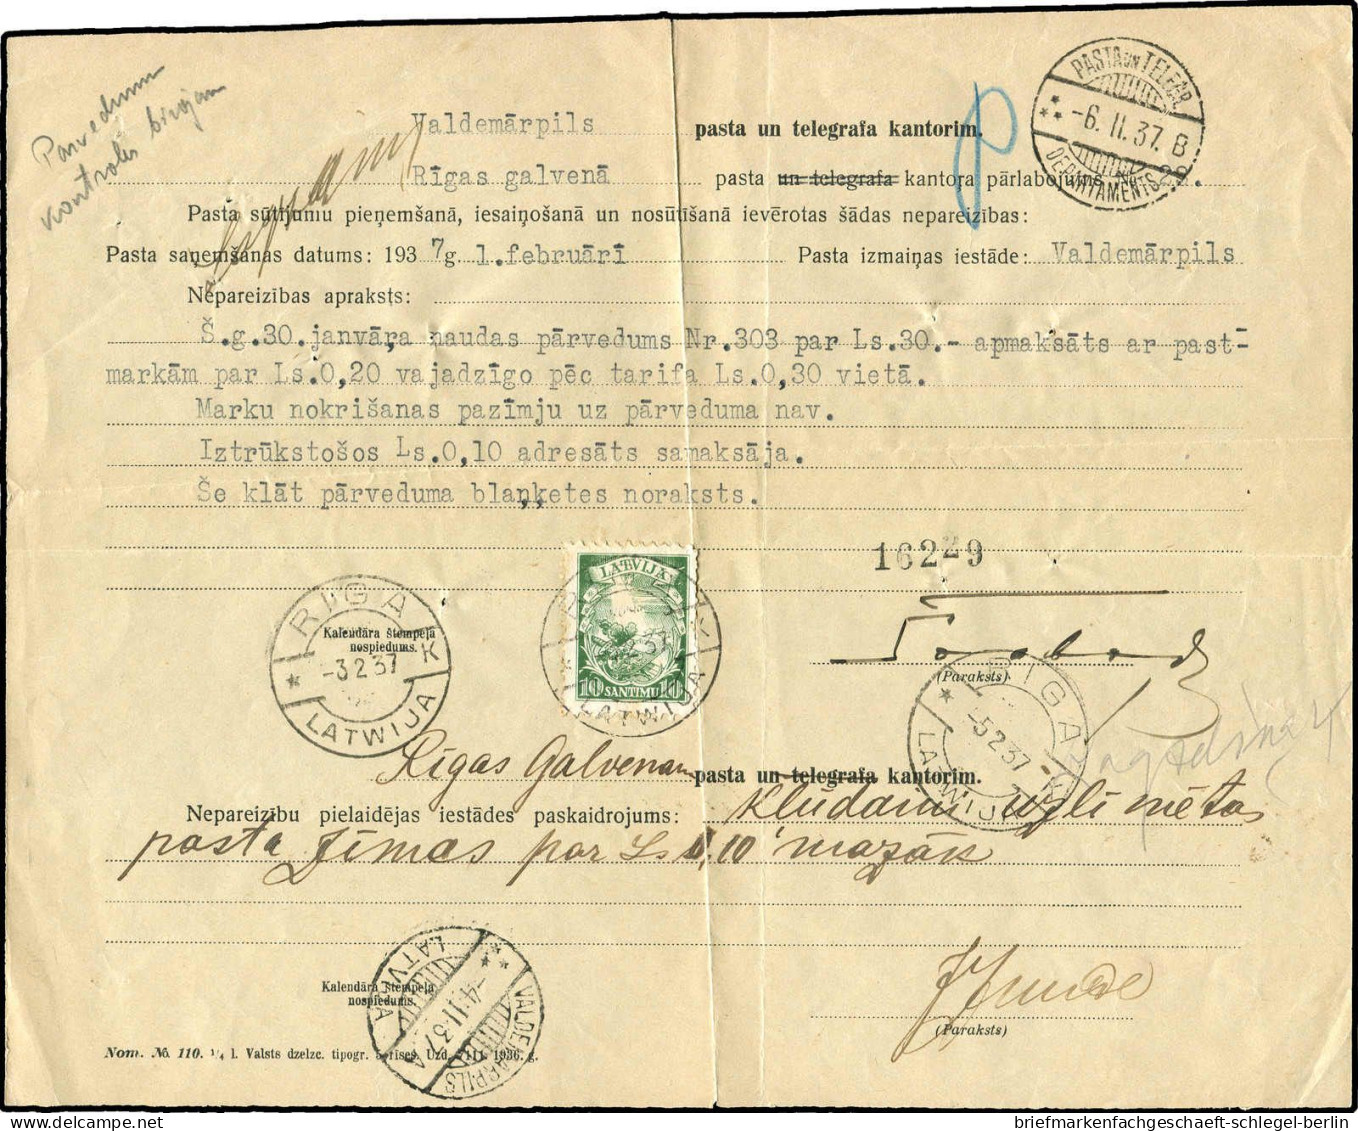 Pārvedumu
kontroles birojam
PASTA UN TELEGR.
-6.II.37. B
DEPARTAMENTS
Valdemārpils pasta un telegrafa kantorim.
Rīgas galvenā pasta un telegrafa kantora pārlabojums
Pasta sūtījumu pieņemšanā, iesaiņošanā un nosūtīšanā ievērotas šādas nepareizības:
Pasta saņemšanas datums: 1937g. 1.februārī Pasta izmaiņas iestāde: Valdemārpils
Nepareizības apraksts:
Š.g.30.janvāŗa naudas pārvedums Nr.303 par Ls.30.- apmaksāts ar past-
markām par Ls.0,20 vajadzīgo pēc tarifa Ls.0,30 vietā.
Marku nokrišanas pazīmju uz pārveduma nav.
Iztrūkstošos Ls.0,10 adresāts samaksāja.
Še klāt pārveduma blaņķetes noraksts.
16229
LATVIJA
10 SANTIMU 10
RIGA K
-3.2.37
LATWIJA
Kalendāra štempeļa
nospiedums.
LATWIJA
(Paraksts)
RIGA
-5.2.37
LATWIJA
Rīgas Galvenam pasta un telegrafa kantorim.
Nepareizību pielaidējas iestādes paskaidrojums: Kļūdami uzlīmētas
pasta zīmes par Ls 0,10 mazāk
Kalendāra štempeļa
nospiedums.
LATVIJA
-4.II.37 A
VALDEMARPILS
(Paraksts)
Nom. № 110. ¼ l. Valsts dzelzc. tipogr. 1936. g.
briefmarkenfachgeschaeft-schlegel-berlin